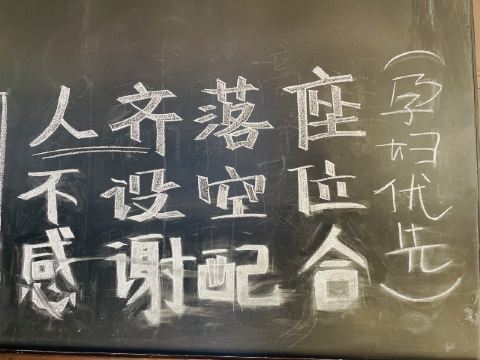 人齐落座
不设空位
感谢配合
(孕妇优先)